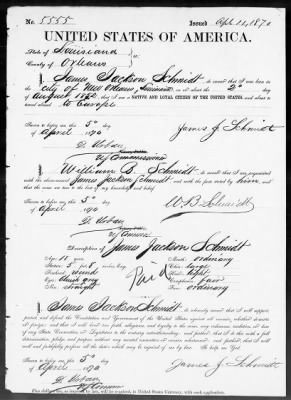 No. 5555 Issued Apl. 11, 1870
UNITED STATES OF AMERICA.
State of Louisiana
County of Orleans
I, James Jackson Schmidt, do swear that I was born in the
City of New Orleans, on or about the 2d day
of August 1852; that I am a NATIVE AND LOYAL CITIZEN OF THE UNITED STATES, and about to
travel abroad to Europe
Sworn to before me this 5th day
of April 1870 James J. Schmidt
I, William B. Schmidt, do swear that I am acquainted
with the above-named James Jackson Schmidt, and with the facts stated by him, and
that the same are true to the best of my knowledge and belief.
Sworn to before me this 5th day
of April 1870 W B Schmidt
Description of James Jackson Schmidt
Age: Mouth: ordinary
Stature: 5 feet 8 inches, Eng. Chin: large
Forehead: round Hair: light
Eyes: Complexion: fair
Nose: straight Face: ordinary
Paid
I, James Jackson Schmidt, do solemnly swear that I will support,
protect, and defend the Constitution and Government of the United States against all enemies, whether
domestic or foreign; and that I will bear true faith, allegiance, and loyalty to the same, any ordinance, resolution, or law
of any State, Convention, or Legislature to the contrary notwithstanding; and further, that I do this with a full
determination, pledge, and purpose, without any mental reservation or evasion whatsoever; and further, that I will
well and faithfully perform all the duties which may be required of me by law. So help me God.
Sworn to before me this 5th day
of April 1870 James J. Schmidt